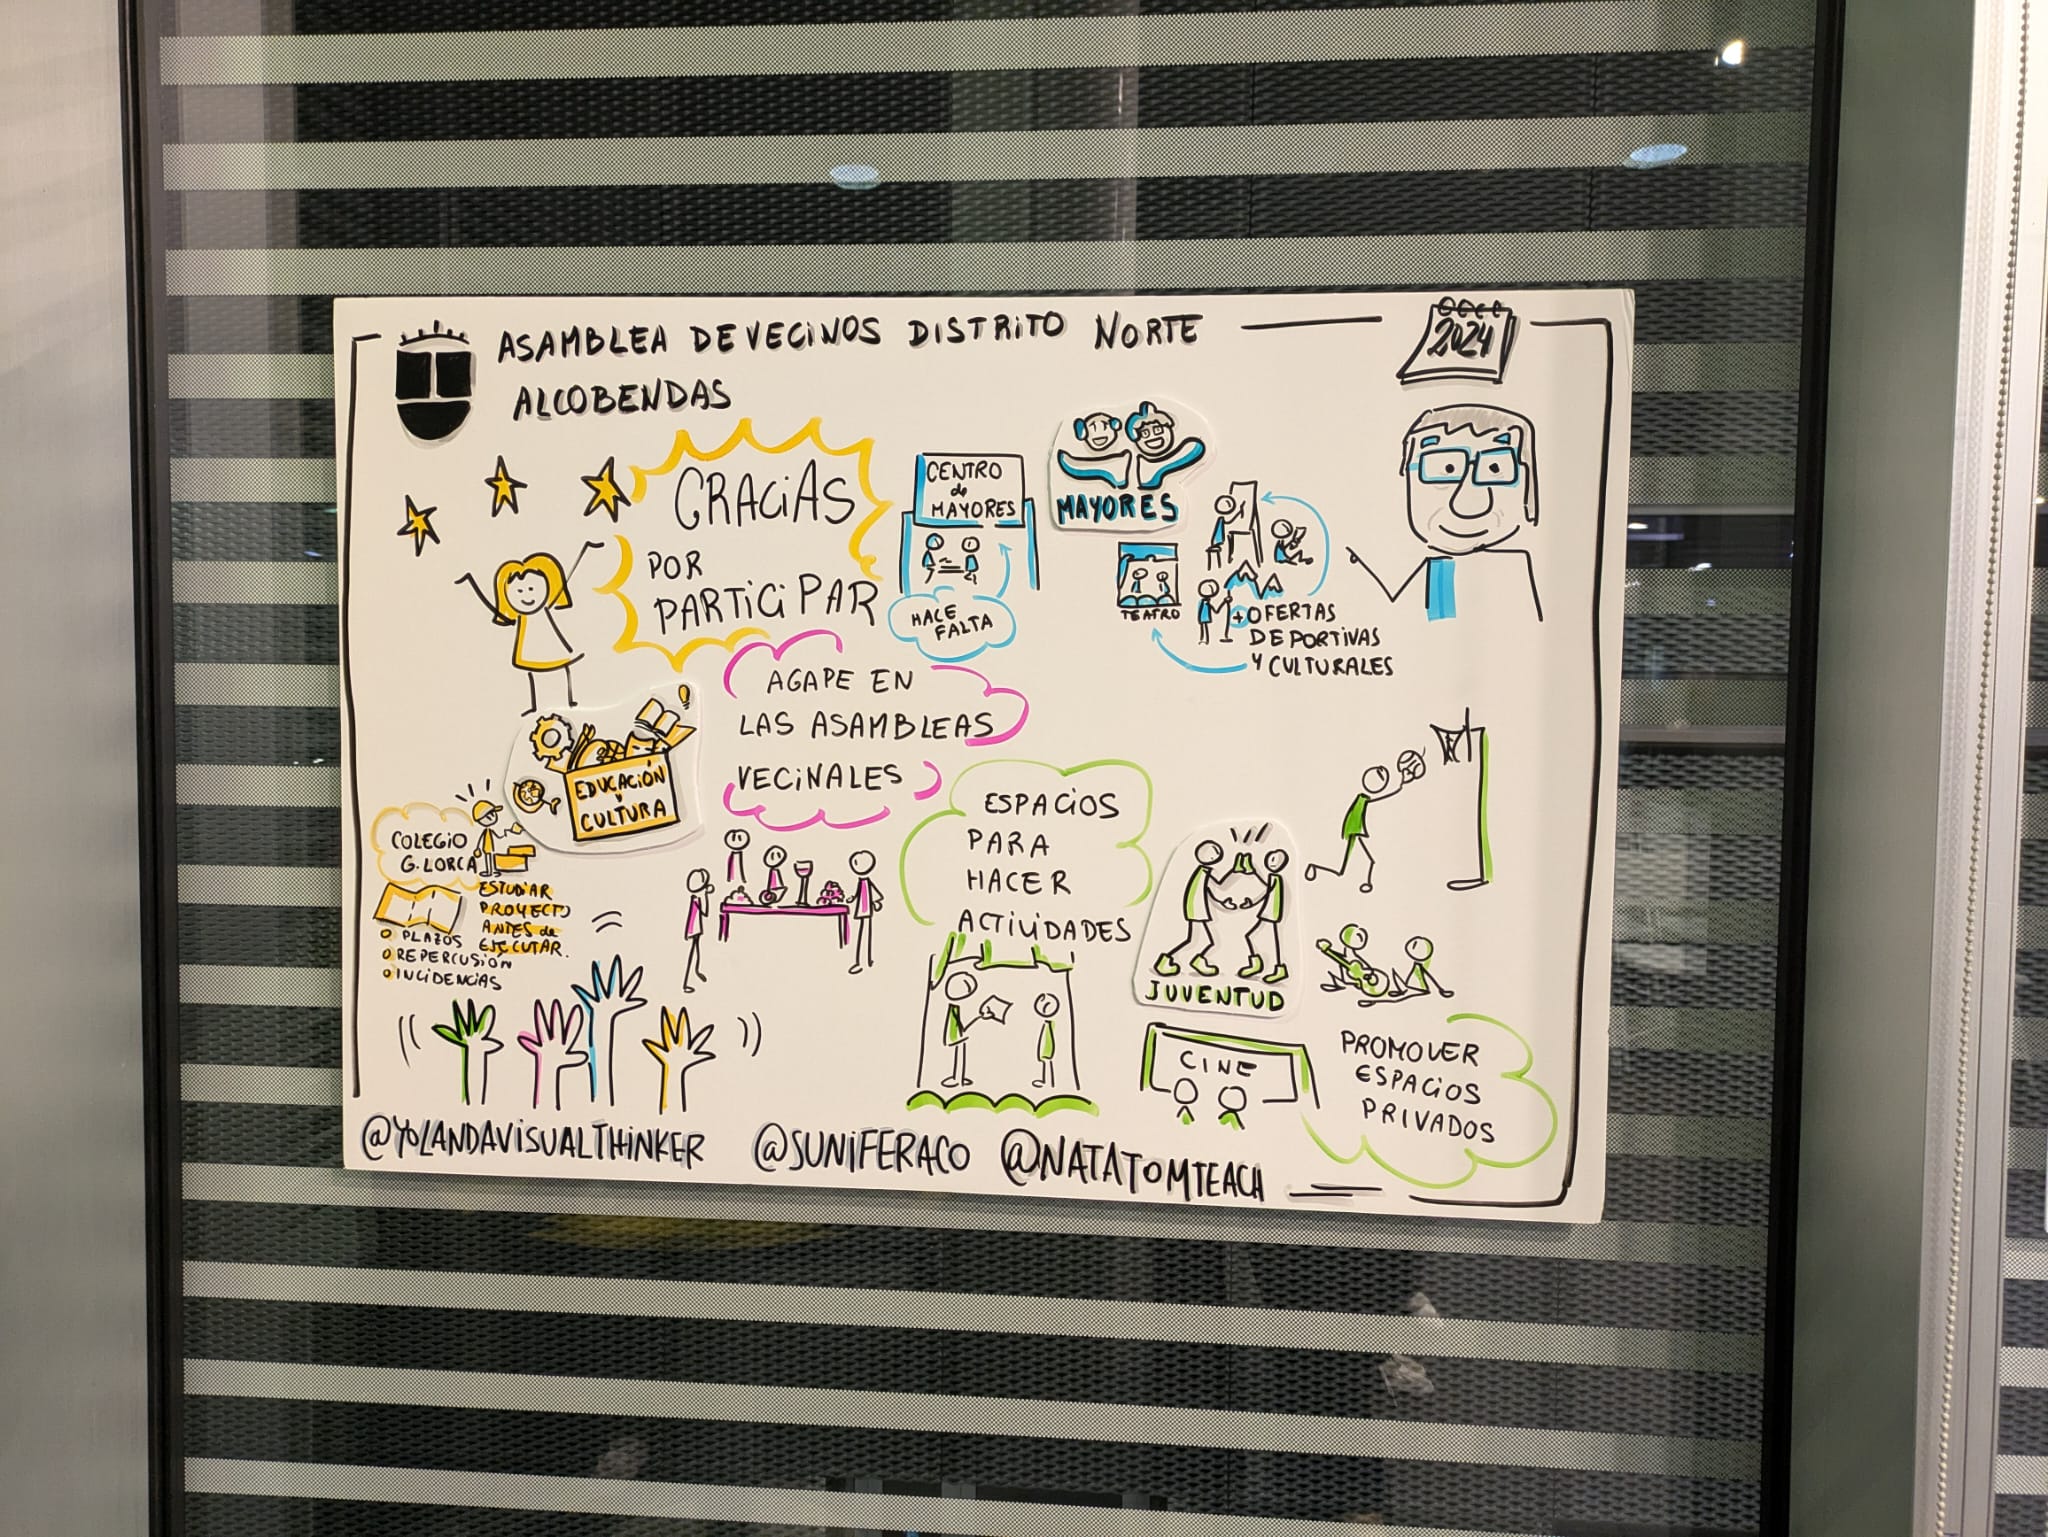 ASAMBLEA DE VECINOS DISTRITO NORTE
ALCOBENDAS
2024
GRACIAS
POR
PARTICIPAR
CENTRO
de
MAYORES
HACE
FALTA
MAYORES
TEATRO
+OFERTAS
DEPORTIVAS
Y CULTURALES
AGAPE EN
LAS ASAMBLEAS
VECINALES
EDUCACIÓN
Y
CULTURA
COLEGIO
G. LORCA
ESTUDIAR
PROYECTO
ANTES de
EJECUTAR.
PLAZOS
REPERCUSIÓN
INCIDENCIAS
ESPACIOS
PARA
HACER
ACTIVIDADES
JUVENTUD
CINE
PROMOVER
ESPACIOS
PRIVADOS
@YOLANDAVISUALTHINKER @SUNIFERACO @NATATOMTEACH